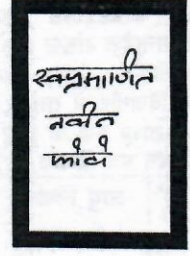 स्वप्रमाणित
नवीन
फोटो